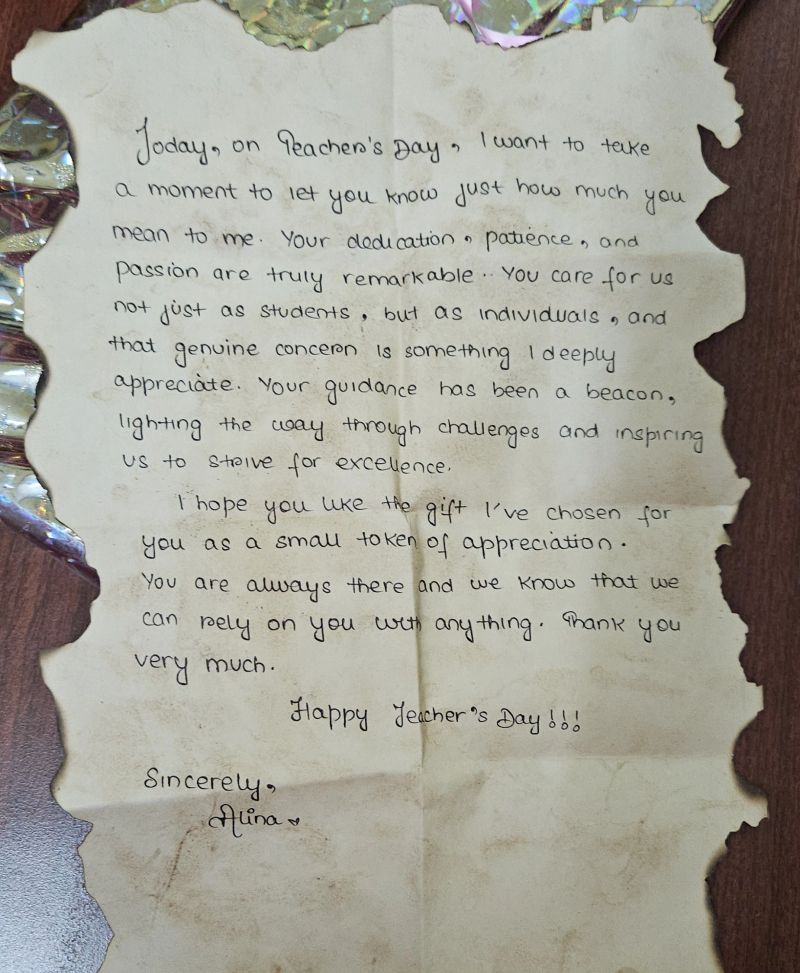 Today, on Teacher's Day, I want to take
a moment to let you know just how much you
mean to me. Your dedication, patience, and
passion are truly remarkable.. You care for us
not just as students, but as individuals, and
that genuine concern is something I deeply
appreciate. Your guidance has been a beacon,
lighting the way through challenges and inspiring
us to strive for excellence.
I hope you like the gift I've chosen for
you as a small token of appreciation.
You are always there and we know that we
can rely on you with anything. Thank you
very much.
Happy Teacher's Day!!!
Sincerely,
Alina